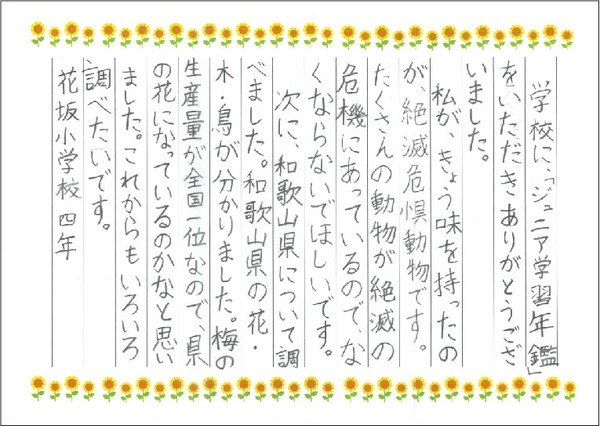 学校に、「ジュニア学習年鑑」
をいただきありがとうござ
いました。
私が、きょう味を持ったの
が、絶滅危惧動物です。
たくさんの動物が絶滅の
危機にあっているので、な
くならないでほしいです。
次に、和歌山県について調
べました。和歌山県の花・
木・鳥が分かりました。梅の
生産量が全国一位なので、県
の花になっているのかなと思い
ました。これからもいろいろ
調べたいです。
花坂小学校四年